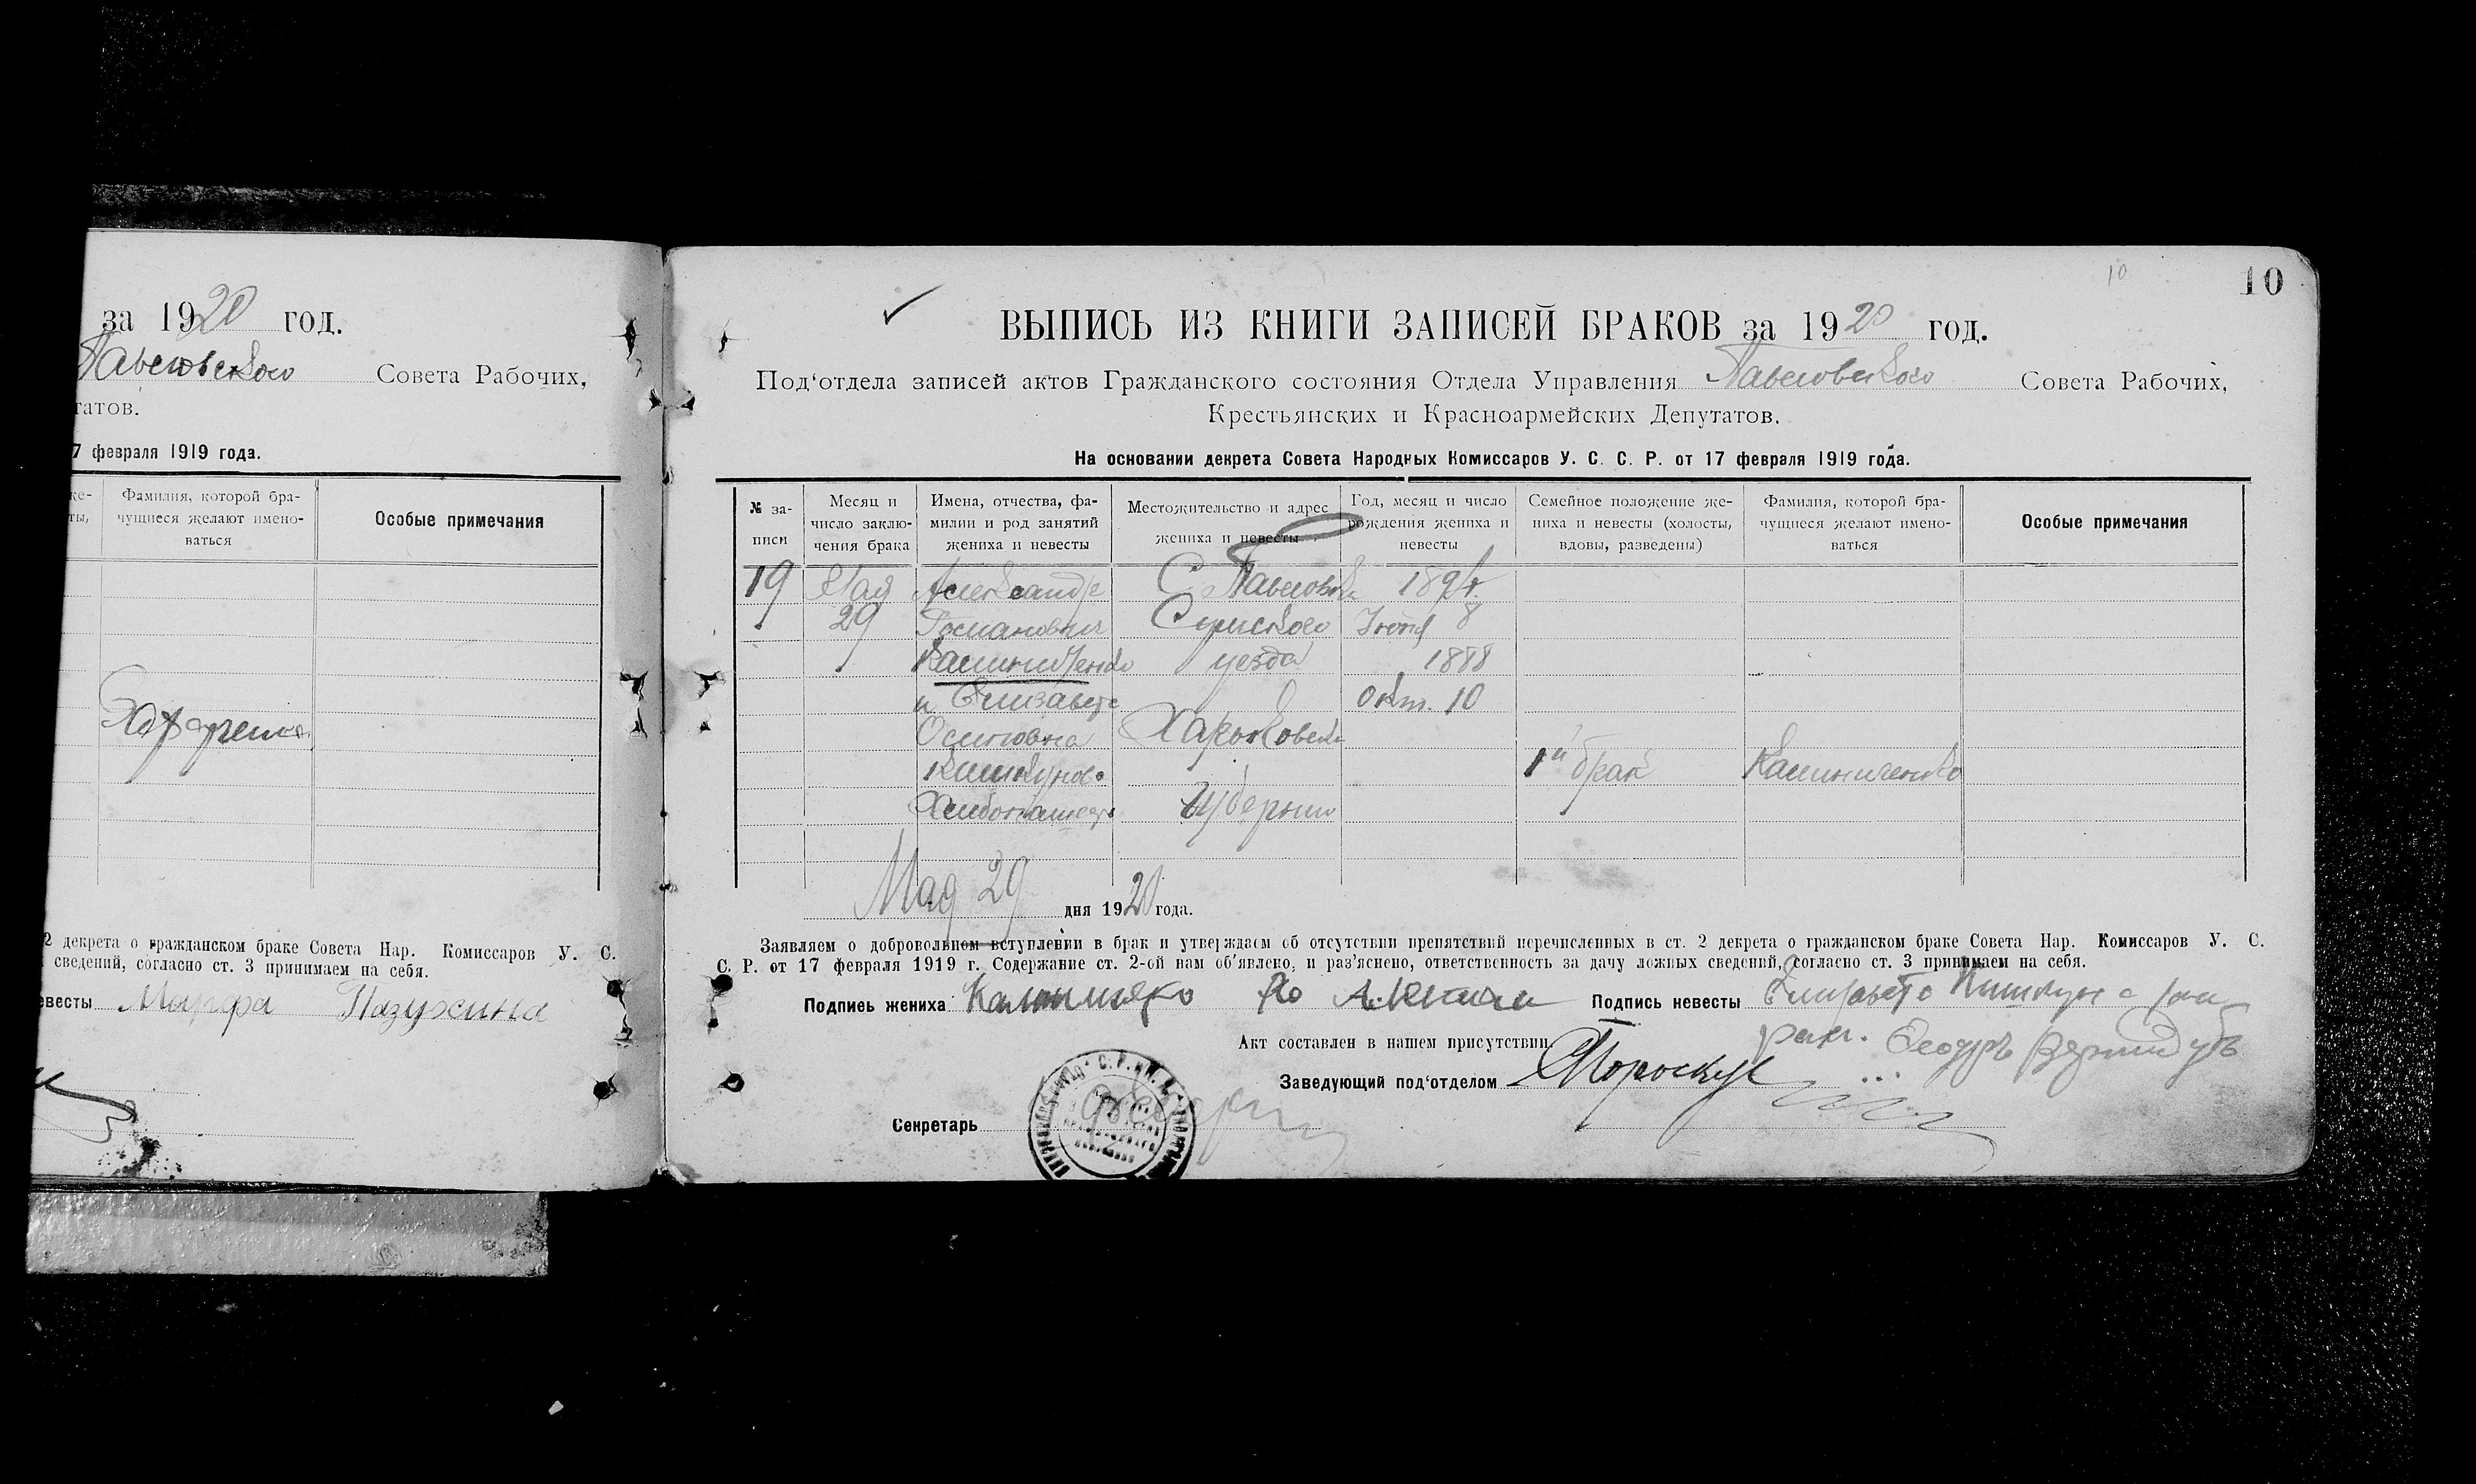 за 1920 год.
Павловского Совета Рабочих,
татов.
7 февраля 1919 года.
же-
ты,
Фамилия, которой бра-
чущиеся желают имено-
ваться
Особые примечания
2 декрета о гражданском браке Совета Нар. Комиссаров У. С.
сведений, согласно ст. 3 принимаем на себя.
евесты Марфа Пазухина
10
10
ВЫПИСЬ ИЗ КНИГИ ЗАПИСЕЙ БРАКОВ за 1920 год.
Под‘отдела записей актов Гражданского состояния Отдела Управления Павловского Совета Рабочих,
Крестьянских и Красноармейских Депутатов.
На основании декрета Совета Народных Комиссаров У. С. С. Р. от 17 февраля 1919 года.
№ за-
писи
Месяц и
число заклю-
чения брака
Имена, отчества, фа-
милии и род занятий
жениха и невесты
Местожительство и адрес
жениха и невесты
Год, месяц и число
рождения жениха и
невесты
Семейное положение же-
ниха и невесты (холосты,
вдовы, разведены)
Фамилия, которой бра-
чущиеся желают имено-
ваться
Особые примечания
19 Мая Александр С. Павловки
29 Романович Сумского Июня 8
Калиниченко уезда 1888
и Елизавета Окт. 10
Осиповна Харьковской
1й брак Калиниченко
Хлебопашец Губернии
Мая 29 дня 1920 года.
Заявляем о добровольном вступлении в брак и утверждаем об отсутствии препятствий перечисленных в ст. 2 декрета о гражданском браке Совета Нар. Комиссаров У. С.
С. Р. от 17 февраля 1919 г. Содержание ст. 2-ой нам об‘явлено, и раз‘яснено, ответственность за дачу ложных сведений, согласно ст. 3 принимаем на себя.
Подпись жениха
Подпись невесты Елизавета
Акт составлен в нашем присутствии.
Заведующий под‘отделом
Секретарь